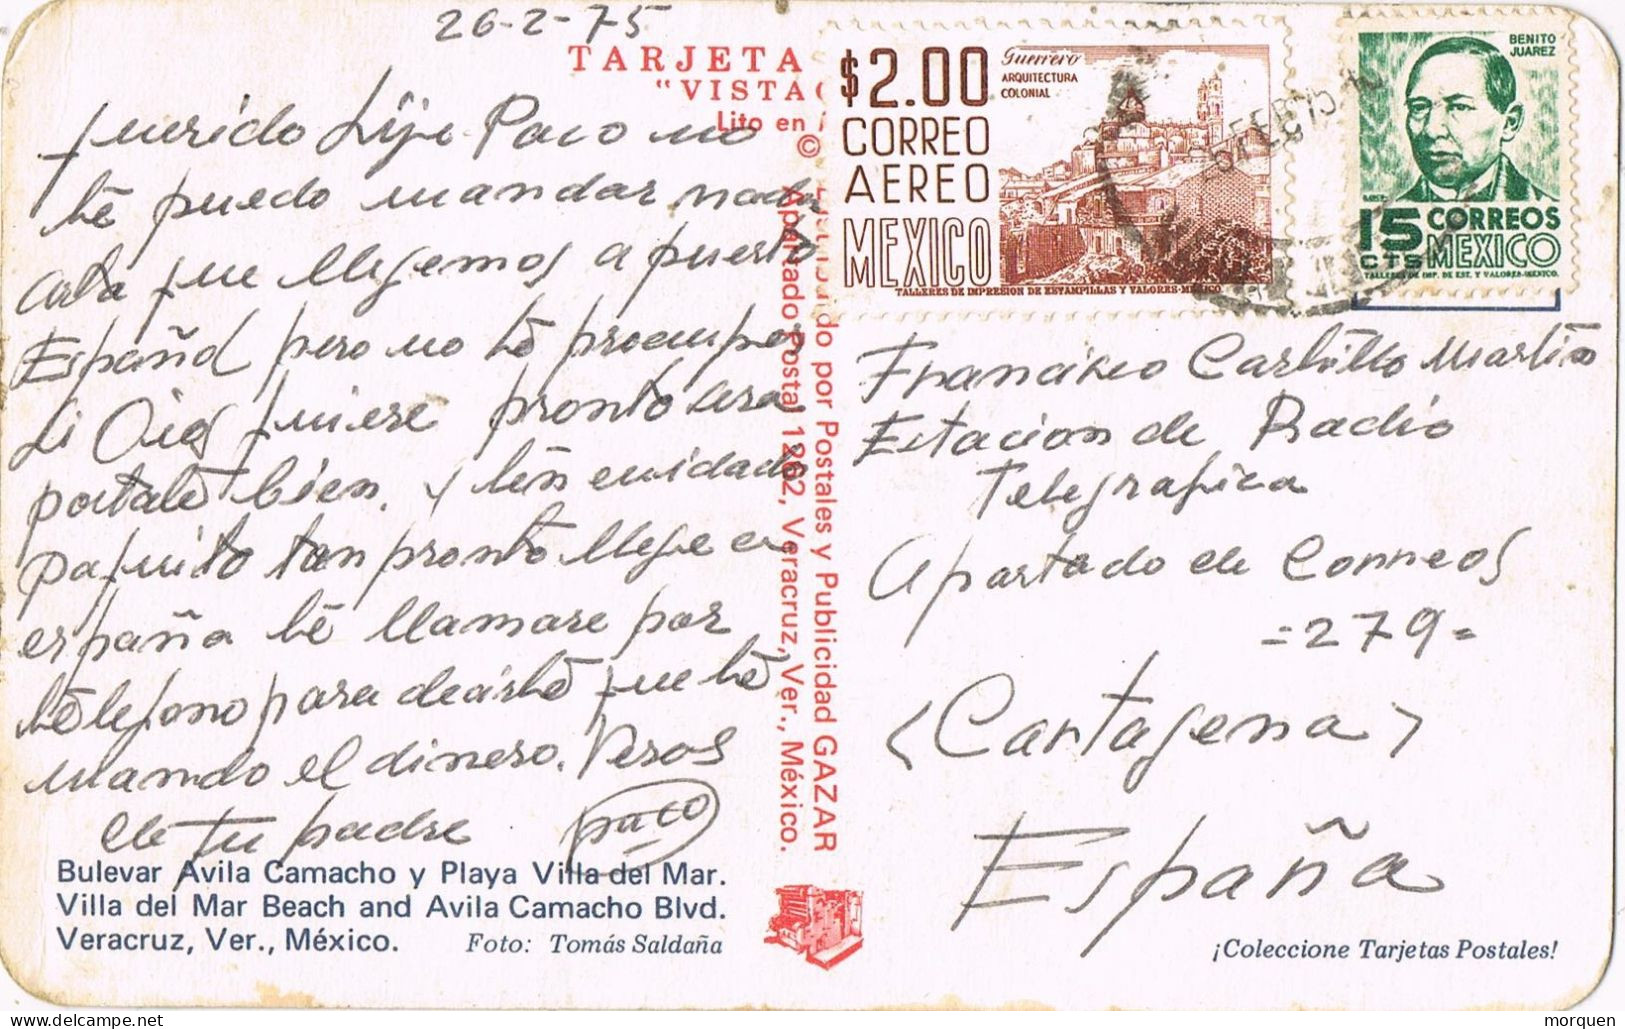 26-2-75
TARJETA
"VISTA
Lito en
querido hijo Paco no
te puedo mandar nada
asta que llegemos a puerto
Español pero no te procupes
si Dios quiere pronto sera
portate bien. y ten cuidado
paquito tan pronto llege a
españa te llamare por
telefono para decirte que te
mando el dinero. Vesos
de tu padre paco
Bulevar Avila Camacho y Playa Villa del Mar.
Villa del Mar Beach and Avila Camacho Blvd.
Veracruz, Ver., México. Foto: Tomás Saldaña
©
do por Postales y Publicidad GAZAR
Apartado Postal 1262, Veracruz, Ver., México.
$2.00
CORREO
AEREO
MEXICO
Guerrero
ARQUITECTURA
COLONIAL
TALLERES DE IMPRESION DE ESTAMPILLAS Y VALORES-MEXICO.
FEB 75
BENITO
JUAREZ
15 CORREOS
CTS MEXICO
TALLERES DE IMP. DE EST. Y VALORES-MEXICO.
Francisco Castillo Martin
Estacion de Radio
Telegrafica
Apartado de Correos
=279=
<Cartagena>
España
¡Coleccione Tarjetas Postales!
morquen